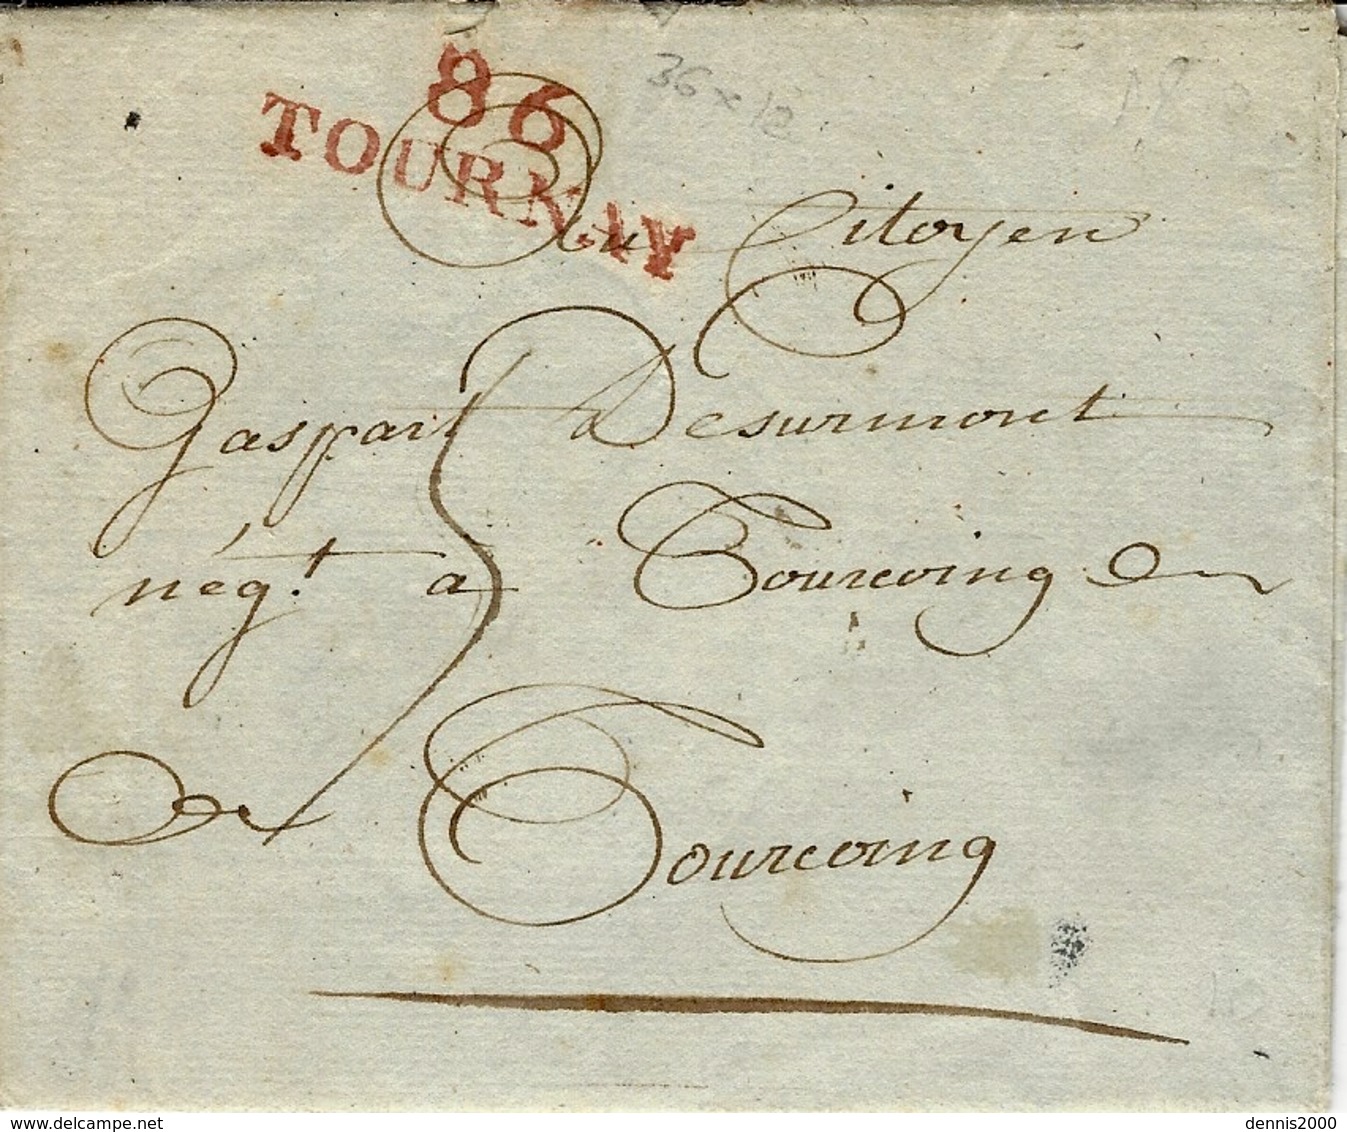 86
TOURNAY
36 x 12
Au Citoyen
Gaspart Desurmont
nég.t a Tourcoing en
a Tourcoing
5
delcampe.net
dennis2000